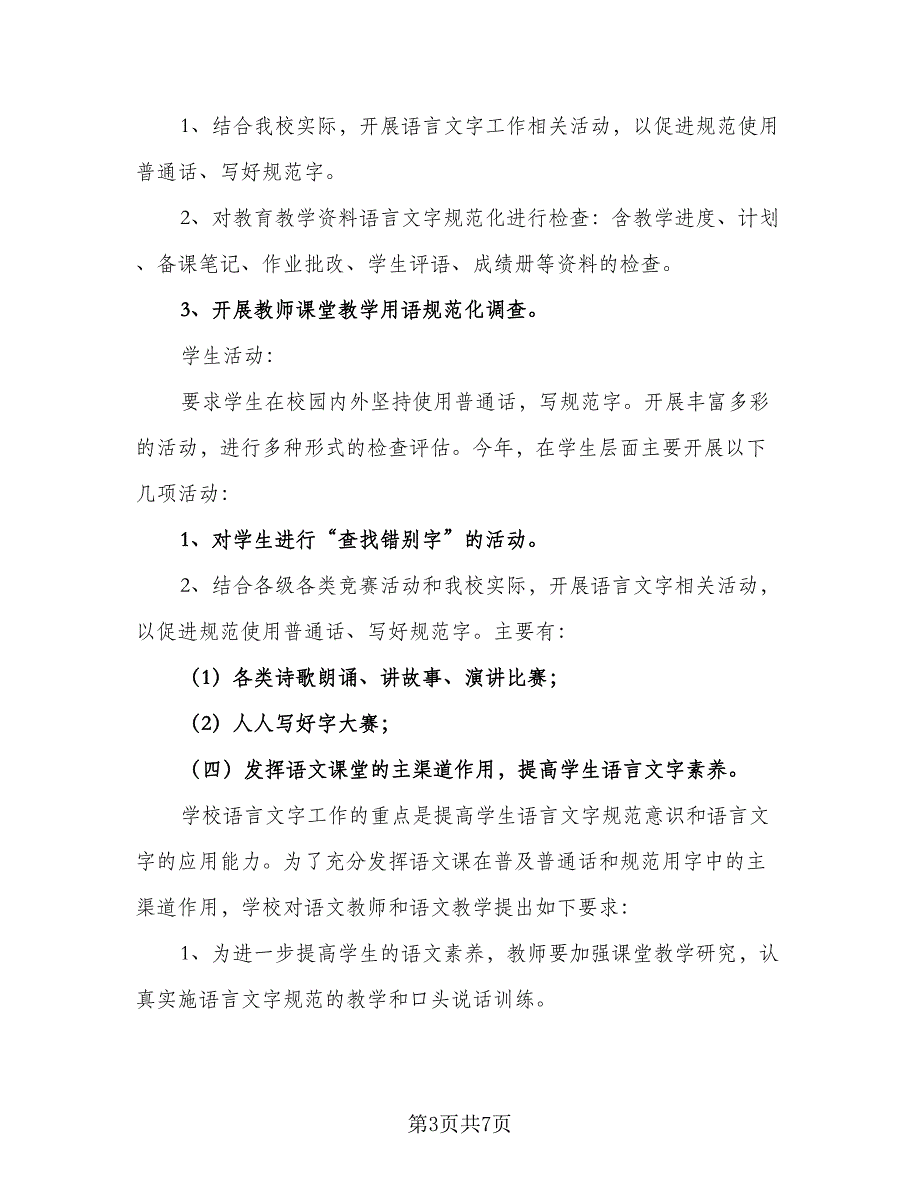 1、结合我校实际，开展语言文字工作相关活动，以促进规范使用
普通话、写好规范字。
2、对教育教学资料语言文字规范化进行检查：含教学进度、计划
、备课笔记、作业批改、学生评语、成绩册等资料的检查。
3、开展教师课堂教学用语规范化调查。
学生活动：
要求学生在校园内外坚持使用普通话，写规范字。开展丰富多彩
的活动，进行多种形式的检查评估。今年，在学生层面主要开展以下
几项活动：
1、对学生进行“查找错别字”的活动。
2、结合各级各类竞赛活动和我校实际，开展语言文字相关活动，
以促进规范使用普通话、写好规范字。主要有：
（1）各类诗歌朗诵、讲故事、演讲比赛；
（2）人人写好字大赛；
（四）发挥语文课堂的主渠道作用，提高学生语言文字素养。
学校语言文字工作的重点是提高学生语言文字规范意识和语言文
字的应用能力。为了充分发挥语文课在普及普通话和规范用字中的主
渠道作用，学校对语文教师和语文教学提出如下要求：
1、为进一步提高学生的语文素养，教师要加强课堂教学研究，认
真实施语言文字规范的教学和口头说话训练。
第3页共7页